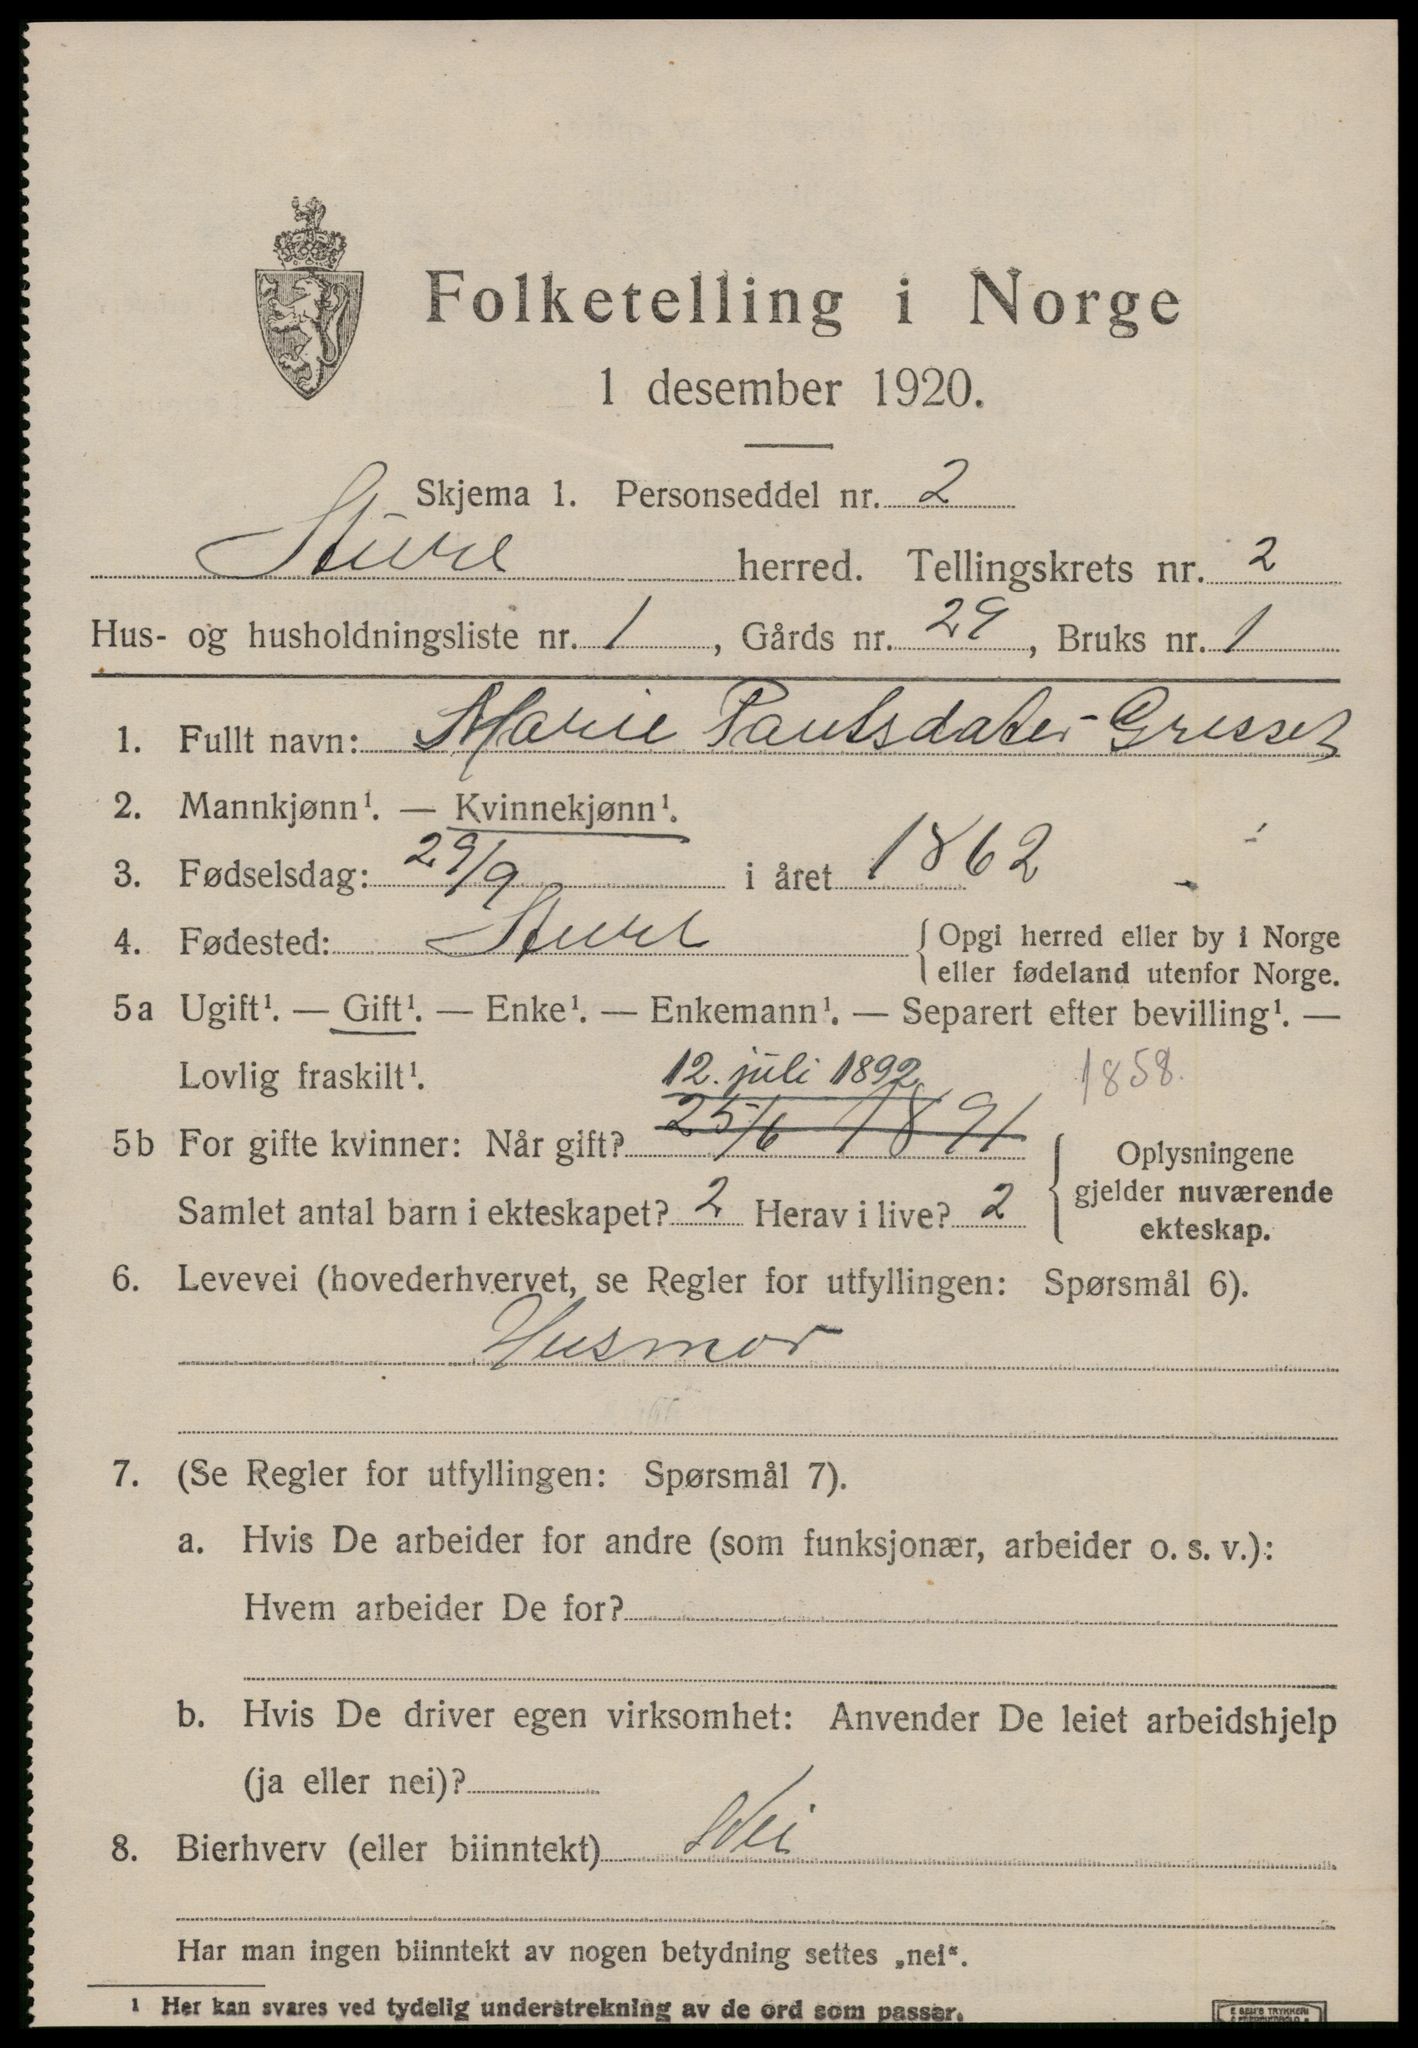 Folketelling i Norge
1 desember 1920.
Skjema 1. Personseddel nr. 2
Stuvl herred. Tellingskrets nr. 2
Hus- og husholdningsliste nr. 1, Gårds nr. 29, Bruks nr. 1
1. Fullt navn: Marie Paulsdater Gresset
2. Mannkjønn¹. — Kvinnekjønn¹.
3. Fødselsdag: 29/9 i året 1862
4. Fødested: Stuvl { Opgi herred eller by i Norge
eller fødeland utenfor Norge.
5a Ugift¹. — Gift¹. — Enke¹. — Enkemann¹. — Separert efter bevilling¹. —
Lovlig fraskilt¹. 12. juli 1892 1858.
5b For gifte kvinner: Når gift? 25/6 1891
Samlet antal barn i ekteskapet? 2 Herav i live? 2
Oplysningene
gjelder nuværende
ekteskap.
6. Levevei (hovederhvervet, se Regler for utfyllingen: Spørsmål 6).
Husmor
7. (Se Regler for utfyllingen: Spørsmål 7).
a. Hvis De arbeider for andre (som funksjonær, arbeider o. s. v.):
Hvem arbeider De for?
b. Hvis De driver egen virksomhet: Anvender De leiet arbeidshjelp
(ja eller nei)?
8. Bierhverv (eller biinntekt) Nei
Har man ingen biinntekt av nogen betydning settes „nei“.
¹ Her kan svares ved tydelig understrekning av de ord som passer.